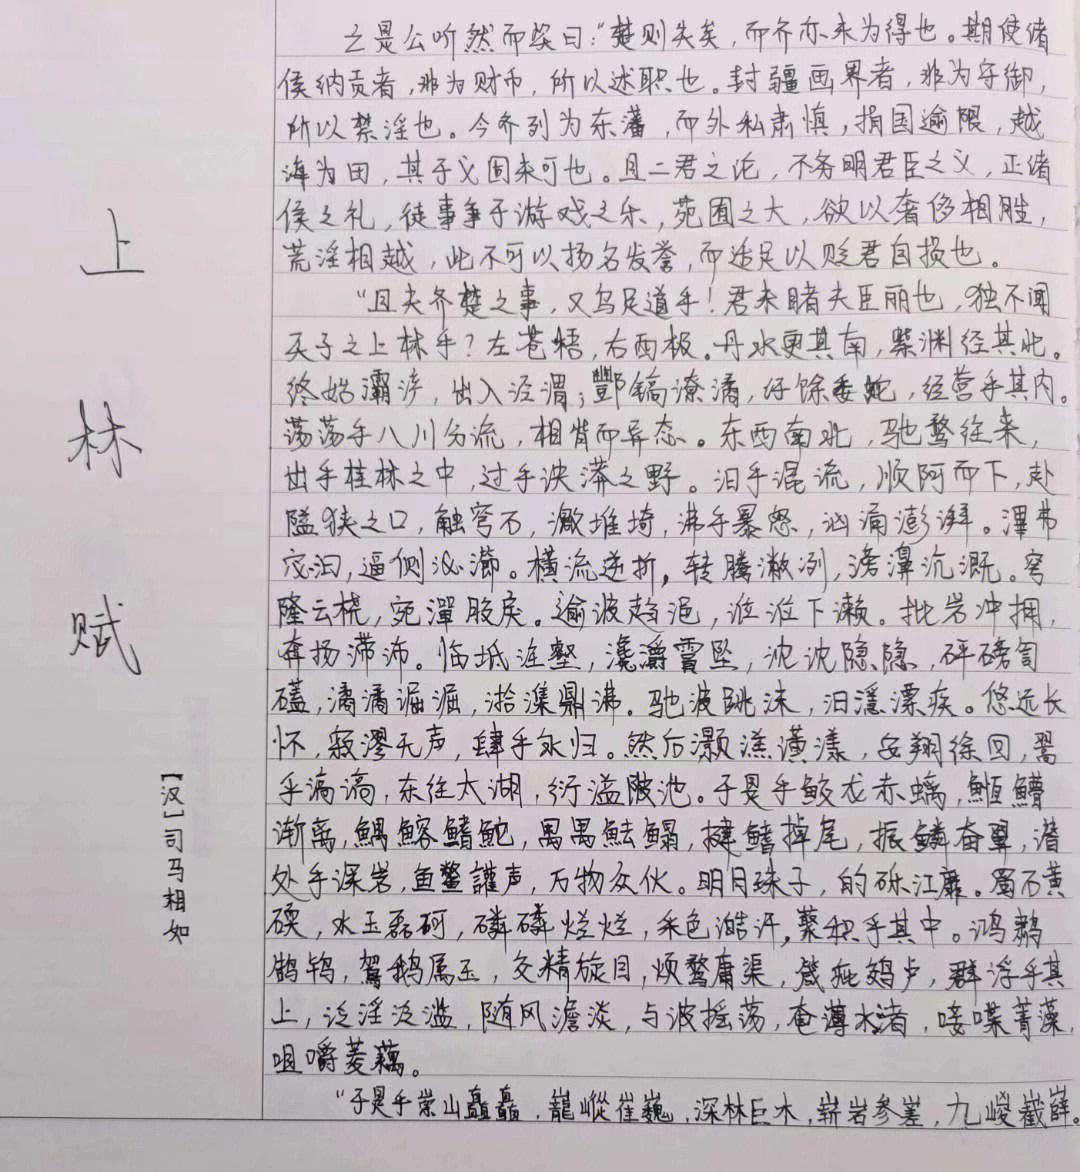 上林赋
【汉】司马相如
亡是公听然而笑曰：“楚则失矣，而齐亦未为得也。夫使诸
侯纳贡者，非为财币，所以述职也。封疆画界者，非为守御，
所以禁淫也。今齐列为东藩，而外私肃慎，捐国逾限，越
海为田，其于义固未可也。且二君之论，不务明君臣之义，正诸
侯之礼，徒事争于游戏之乐，苑囿之大，欲以奢侈相胜，
荒淫相越，此不可以扬名发誉，而适足以贬君自损也。
“且夫齐楚之事，又乌足道乎！君未睹夫巨丽也，独不闻
天子之上林乎？左苍梧，右西极。丹水更其南，紫渊径其北。
终始灞浐，出入泾渭；酆镐潦潏，纡馀委蛇，经营乎其内。
荡荡乎八川分流，相背而异态。东西南北，驰骛往来，
出乎桂林之中，过乎泱漭之野。汨乎混流，顺阿而下，赴
隘狭之口，触穹石，激堆埼，沸乎暴怒，汹涌澎湃。滭弗
宓汩，逼侧泌瀄。横流逆折，转腾潎洌，滂濞沆溉。穹
隆云桡，宛潬胶戾。逾波趋浥，涖涖下濑。批岩冲拥，
奔扬滞沛。临坻注壑，瀺灂霣坠，沈沈隐隐，砰磅訇
礚，潏潏淈淈，湁潗鼎沸。驰波跳沫，汩㴔漂疾。悠远长
怀，寂漻无声，肆乎永归。然后灏溔潢漾，安翔徐回，翯
乎滈滈，东注太湖，衍溢陂池。于是乎鲛龙赤螭，䱍䲛
渐离，鰅鰫鳍鮀，禺禺魼鳎，揵鳍掉尾，振鳞奋翼，潜
处乎深岩，鱼鳖讙声，万物众伙。明月珠子，的砾江靡。蜀石黄
碝，水玉磊砢，磷磷烂烂，采色澔汗，藂积乎其中。鸿鹔
鹄鸨，鴐鹅属玉，交精旋目，烦鹜庸渠，箴疵鵁卢，群浮乎其
上，泛淫泛滥，随风澹淡，与波摇荡，奄薄水渚，唼喋菁藻，
咀嚼菱藕。
“于是乎崇山矗矗，巃嵷崔巍，深林巨木，崭岩参嵳，九嵕巀嶭。